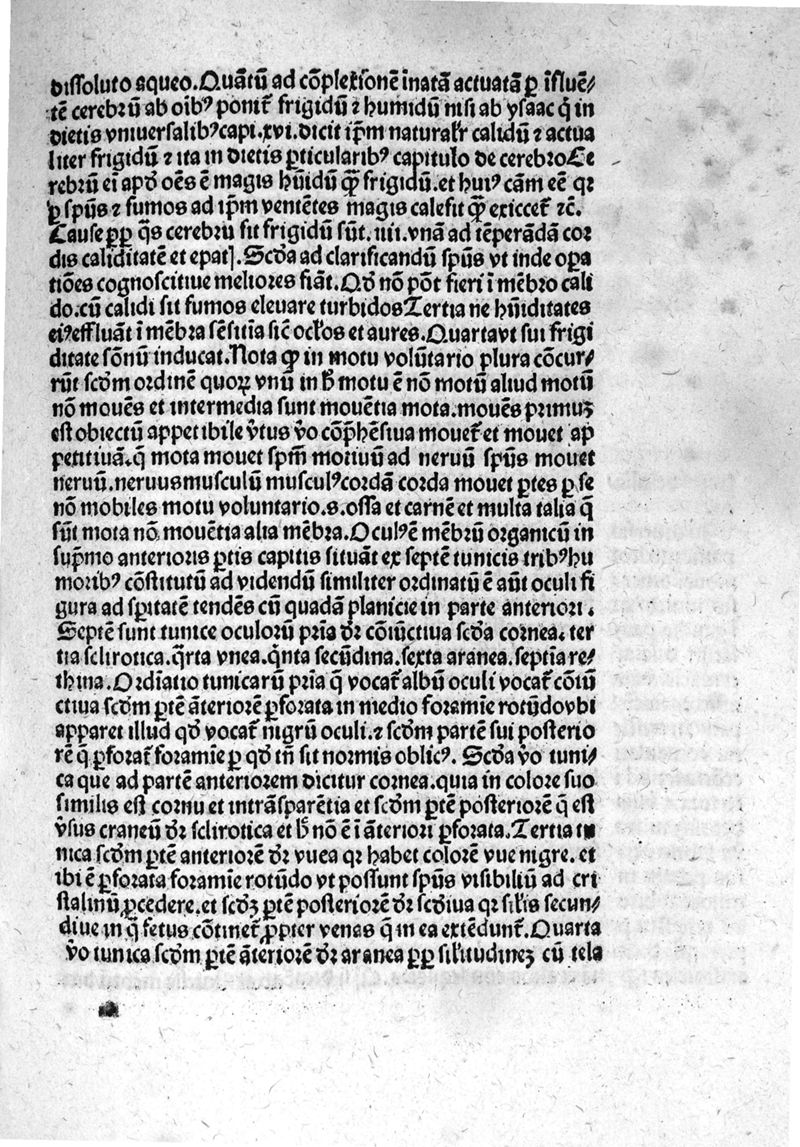 dissoluto aqueo. Quātū ad cōplexionē inatā actuatā ꝑ īfluē/
tē cerebrū ab oībꝰ ponit᷑ frigidū ⁊ humidū nisi ab ysaac q̄ in
dietis vniuersalibꝰ capi.xvi. dicit ip̄m naturalr̄ calidū ⁊ actua
liter frigidū ⁊ ita in dietis ꝑticularibꝰ capitulo de cerebro Ce
rebrū ei apd̕ oēs ē magis hūidū qꝫ̄ frigidū. et huiꝰ cām eē qr
ꝑ spūs ⁊ fumos ad ip̄m veniētes magis calefit qꝫ̄ exiccet᷑ ⁊c̄.
Cause ꝓpꝑ q̄s cerebrū sit frigidū sūt .iiii. vnā ad tēperādā cor
dis caliditatē et epatꝭ. Scd̕a ad clarificandū spūs vt inde oꝑa
tiōes cognoscitiue meliores fiāt. Qd̕ nō pōt fieri ī mēbro cali
do. cū calidi sit fumos eleuare turbidos Tertia ne hūiditates
eiꝰ effluāt ī mēbra sēsitīa sic̄ oclos et aures. Quarta vt sui frigi
ditate sōnū inducat. Nota ꝙ in motu volūtario plura cōcur/
rūt scd̕m ordinē quoꝝ vnū in h̄ motu ē nō motū aliud motū
nō mouēs et intermedia sunt mouētia mota. mouēs primuꝫ
est obiectū appetibile v̕tus v̕o cōp̄hēsiua mouet᷑ et mouet ap
petitiuā. q̄ mota mouet spm̄ motiuū ad neruū spūs mouet
neruū. neruus musculū musculꝰ cordā corda mouet ꝑtes ꝑ se
nō mobiles motu voluntario .s. ossa et carnē et multa talia q̄
sūt mota nō mouētia alia mēbra. Oculꝰ ē mēbrū organicū in
sup̄mo anterioris ꝑtis capitis situāt ex septē tunicis tribꝰ hu
moribꝰ cōstitutū ad videndū similiter ordinatū ē aūt oculi fi
gura ad sꝑitatē tendēs cū quadā planicie in parte anteriori.
Septē sunt tunice oculorū prīa dr̄ cōiūctiua scd̕a cornea. ter
tia sclirotica. q̄rta vnea. qīnta secūdina. sexta aranea. septīa re/
thina. Ordīatio tunicarū prīa q̄ vocat᷑ albū oculi vocat᷑ cōiū
ctiua scd̕m ꝑtē āteriorē ꝑforata in medio foramīe rotūdo vbi
apparet illud qd̕ vocat᷑ nigrū oculi. ⁊ scd̕m partē sui posterio
rē q̄ ꝑforat᷑ foramīe ꝑ qd̕ tn̄ sit normis oblicꝰ. Scd̕a v̕o tuni/
ca que ad partē anteriorem dicitur cornea. quia in colore suo
similis est cornu et intrāsparētia et scd̕m ꝑtē posteriorē q̄ est
v̕sus craneū dr̄ sclirotica et h̄ nō ē ī āteriori ꝑforata. Tertia tu
nica scd̕m ꝑtē anteriorē dr̄ vuea qr habet colorē vue nigre. et
ibi ē ꝑforata foramīe rotūdo vt possunt spūs visibiliū ad cri
stalinū ꝓcedere. et scd̕ꝫ ꝑtē posteriorē dr̄ scd̕iua qr silis̄ secun/
diue in q̄ fetus cōtinet᷑ ꝓpter venas q̄ in ea extēdunt᷑. Quarta
v̕o tunica scd̕m ꝑtē āteriorē dr̄ aranea ꝓpꝑ sīlitudineꝫ cū tela